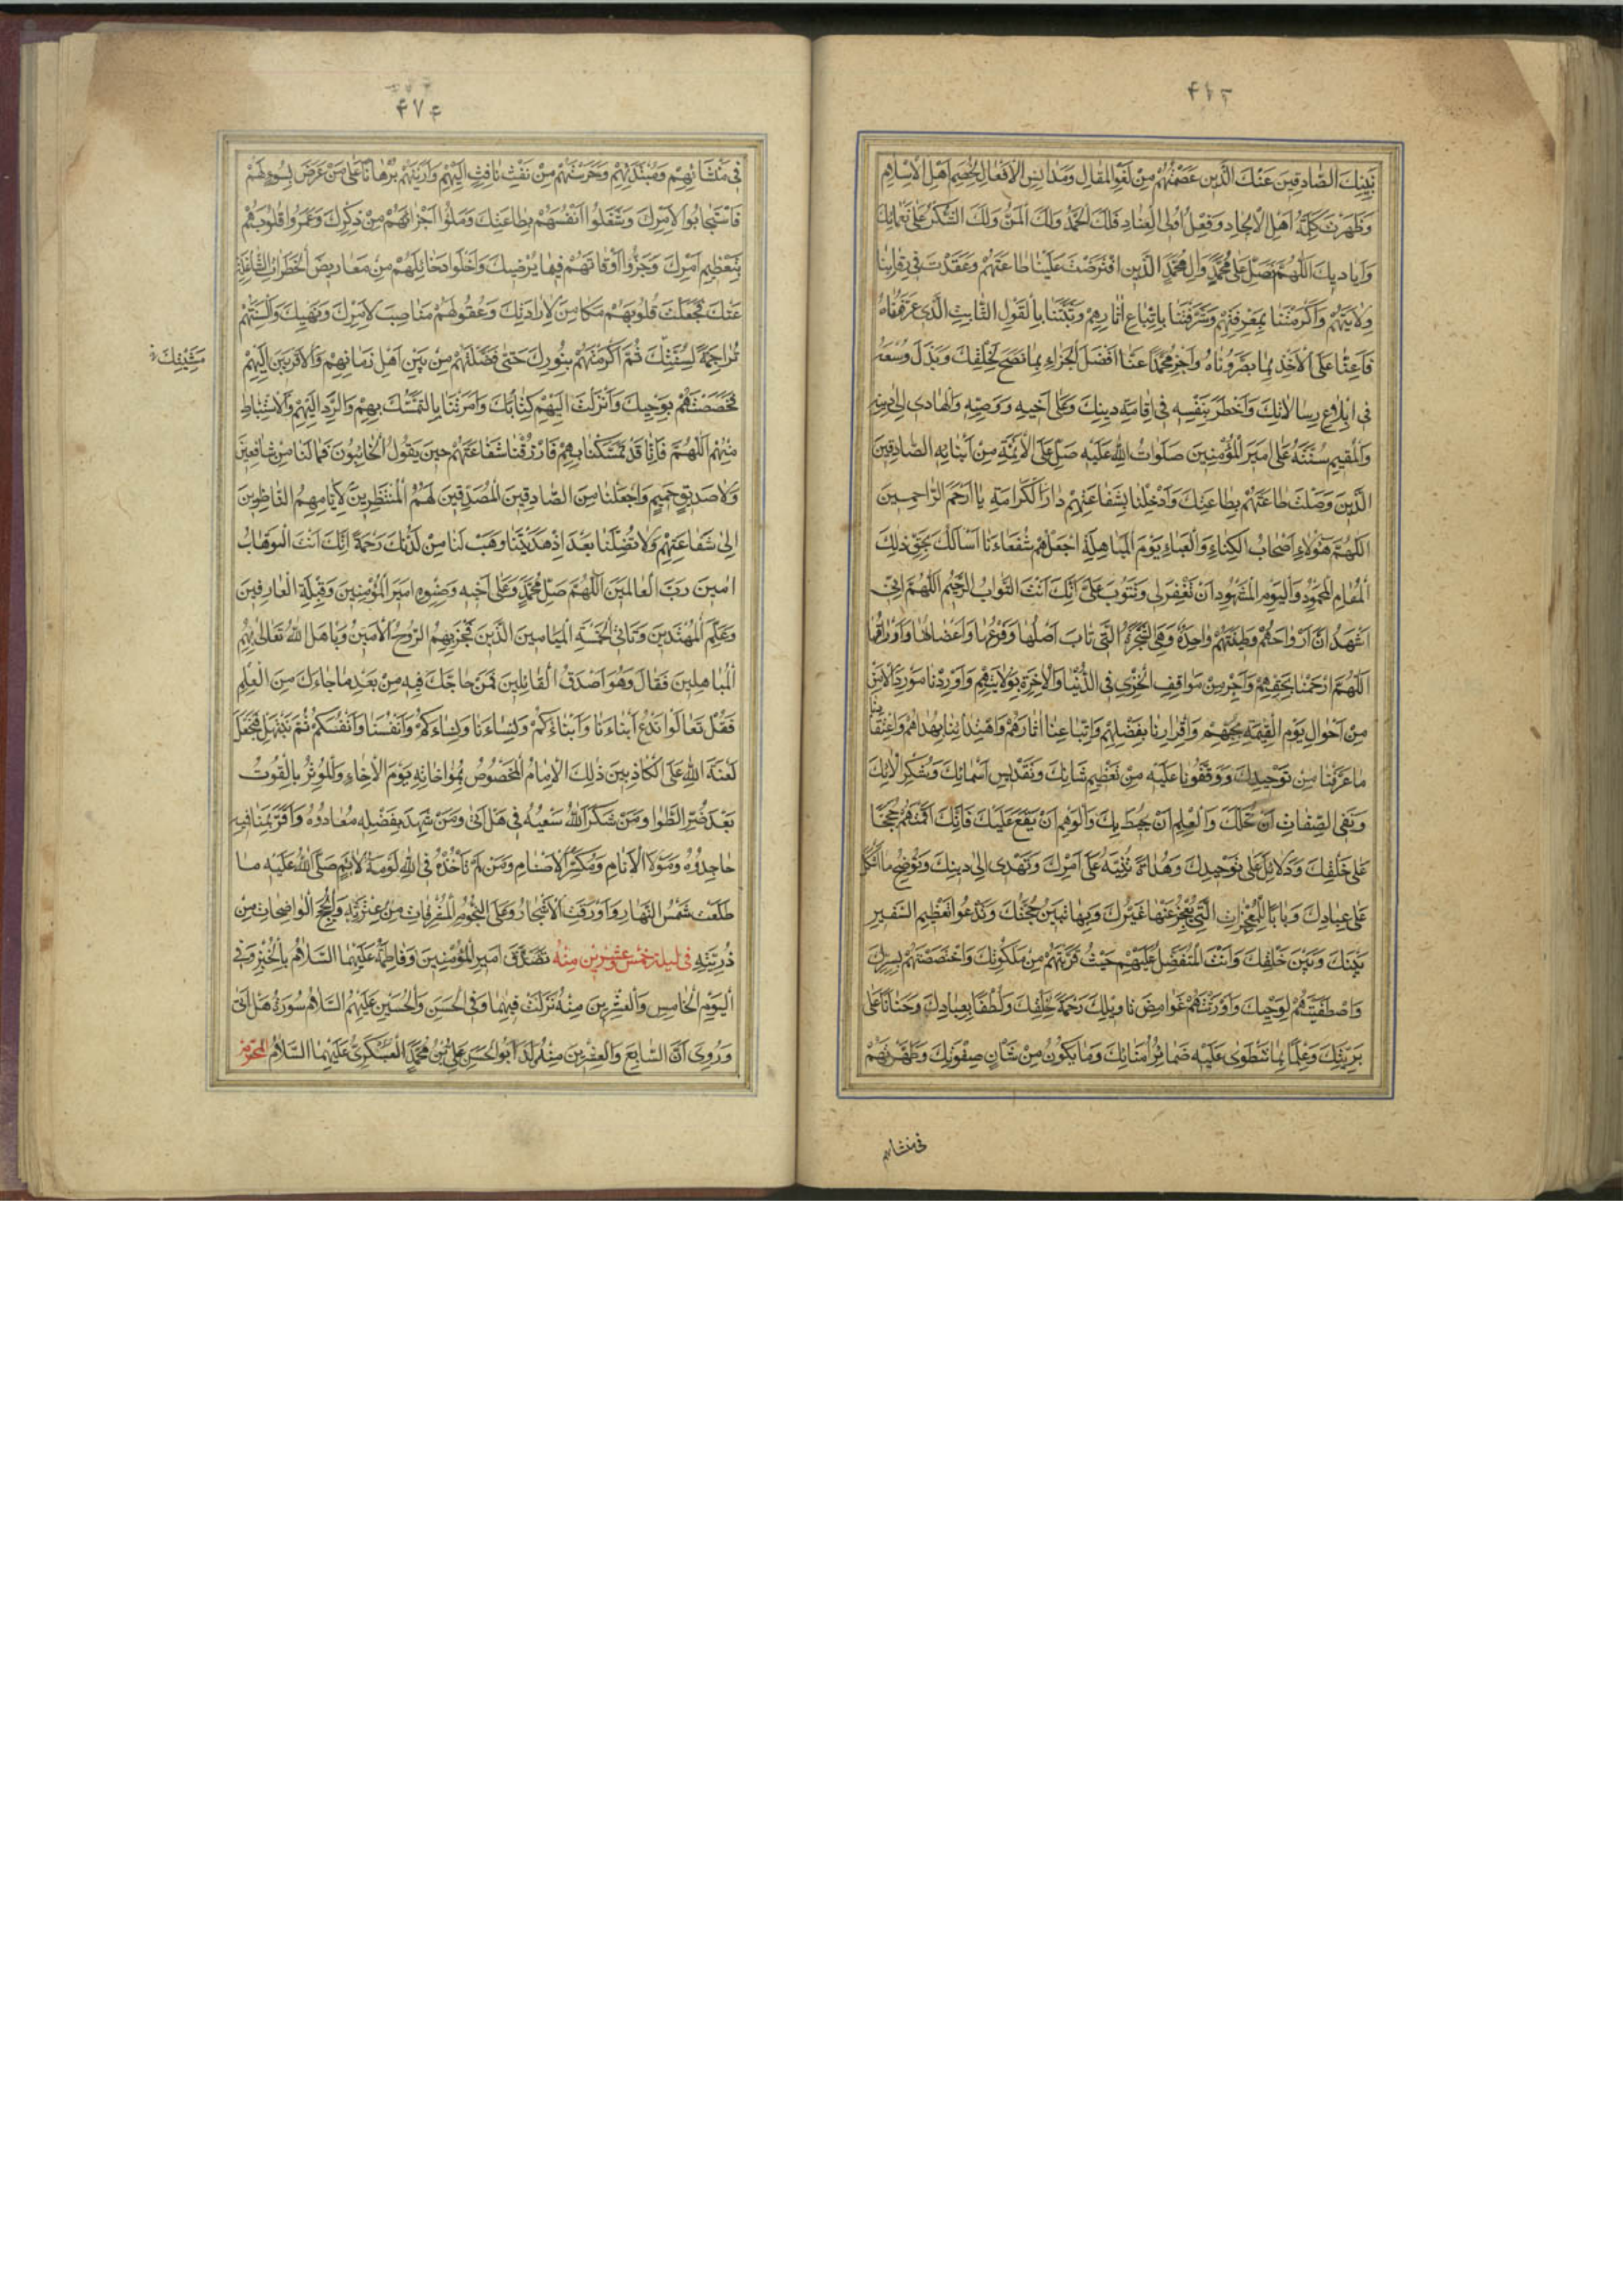 نَبِيِّكَ الصَّادِقِينَ عَنْكَ الَّذِينَ عَصَمْتَهُمْ مِنْ لَغْوِ الْمَقَالِ وَمَدَانِسِ الْأَفْعَالِ لِخَصْمِ أَهْلِ الْإِسْلَامِ
وَظَهَرَتْ كَلِمَةُ أَهْلِ الْإِلْحَادِ وَفِعْلُ أُولِي الْعِنَادِ فَلَكَ الْحَمْدُ وَلَكَ الْمَنُّ وَلَكَ الشُّكْرُ عَلَى نَعْمَائِكَ
وَأَيَادِيكَ اللَّهُمَّ فَصَلِّ عَلَى مُحَمَّدٍ وَآلِ مُحَمَّدٍ الَّذِينَ افْتَرَضْتَ عَلَيْنَا طَاعَتَهُمْ وَعَقَدْتَ فِي رِقَابِنَا
وِلَايَتَهُمْ وَأَكْرَمْتَنَا بِمَعْرِفَتِهِمْ وَشَرَّفْتَنَا بِاتِّبَاعِ آثَارِهِمْ وَثَبَّتَّنَا بِالْقَوْلِ الثَّابِتِ الَّذِي عَرَّفُونَاهُ
فَأَعِنَّا عَلَى الْأَخْذِ بِمَا بَصَّرُونَاهُ وَاجْزِ مُحَمَّدًا عَنَّا أَفْضَلَ الْجَزَاءِ بِمَا نَصَحَ لِخَلْقِكَ وَبَذَلَ وُسْعَهُ
فِي إِبْلَاغِ رِسَالَاتِكَ وَأَخْطَرَ بِنَفْسِهِ فِي إِقَامَةِ دِينِكَ وَعَلَى أَخِيهِ وَوَصِيِّهِ وَالْهَادِي إِلَى دِينِهِ
وَالْمُقِيمِ سُنَّتَهُ عَلِيٍّ أَمِيرِ الْمُؤْمِنِينَ صَلَوَاتُ اللهِ عَلَيْهِ صَلِّ عَلَى الْأَئِمَّةِ مِنْ أَبْنَائِهِ الصَّادِقِينَ
الَّذِينَ وَصَلْتَ طَاعَتَهُمْ بِطَاعَتِكَ وَأَدْخِلْنَا بِشَفَاعَتِهِمْ دَارَ الْكَرَامَةِ يَا أَرْحَمَ الرَّاحِمِينَ
اللَّهُمَّ هَؤُلَاءِ أَصْحَابُ الْكِسَاءِ وَالْعَبَاءِ يَوْمَ الْمُبَاهَلَةِ اجْعَلْهُمْ شُفَعَاءَنَا أَسْأَلُكَ بِحَقِّ ذَلِكَ
الْمَقَامِ الْمَحْمُودِ وَالْيَوْمِ الْمَشْهُودِ أَنْ تَغْفِرَ لِي وَتَتُوبَ عَلَيَّ إِنَّكَ أَنْتَ التَّوَّابُ الرَّحِيمُ اللَّهُمَّ إِنِّي
أَشْهَدُ أَنَّ أَرْوَاحَهُمْ وَطِينَتَهُمْ وَاحِدَةٌ وَهِيَ الشَّجَرَةُ الَّتِي طَابَ أَصْلُهَا وَفَرْعُهَا وَأَغْصَانُهَا وَأَوْرَاقُهَا
اللَّهُمَّ ارْحَمْنَا بِحَقِّهِمْ وَأَجِرْنَا مِنْ مَوَاقِفِ الْخِزْيِ فِي الدُّنْيَا وَالْآخِرَةِ بِوَلَايَتِهِمْ وَأَوْرِدْنَا مَوَارِدَ الْأَمْنِ
مِنْ أَهْوَالِ يَوْمِ الْقِيَمَةِ بِحُبِّهِمْ وَإِقْرَارِنَا بِفَضْلِهِمْ وَاتِّبَاعِنَا آثَارَهُمْ وَاهْتِدَائِنَا بِهُدَاهُمْ وَاعْتِقَادِنَا
مَا عَرَّفُونَا مِنْ تَوْحِيدِكَ وَوَقَّفُونَا عَلَيْهِ مِنْ تَعْظِيمِ شَانِكَ وَتَقْدِيسِ أَسْمَائِكَ وَشُكْرِ آلَائِكَ
وَنَفْيِ الصِّفَاتِ أَنْ تَحُلَّكَ وَالْعِلْمِ أَنْ يُحِيطَ بِكَ وَالْوَهْمِ أَنْ يَقَعَ عَلَيْكَ فَإِنَّكَ أَقَمْتَهُمْ حُجَجًا
عَلَى خَلْقِكَ وَدَلَائِلَ عَلَى تَوْحِيدِكَ وَهُدَاةً تُنَبِّهُ عَلَى أَمْرِكَ وَتَهْدِي إِلَى دِينِكَ وَتُوضِحُ مَا أَشْكَلَ
عَلَى عِبَادِكَ وَبَابًا لِلْمُعْجِزَاتِ الَّتِي يَعْجِزُ عَنْهَا غَيْرُكَ وَبِهَا تَبِينُ حُجَّتُكَ وَتَدْعُو إِلَى تَعْظِيمِ السَّفِيرِ
بَيْنَكَ وَبَيْنَ خَلْقِكَ وَأَنْتَ الْمُتَفَضِّلُ عَلَيْهِمْ حَيْثُ قَرَّبْتَهُمْ مِنْ مَلَكُوتِكَ وَاخْتَصَصْتَهُمْ بِسِرِّكَ
وَاصْطَفَيْتَهُمْ لِوَحْيِكَ وَأَوْرَثْتَهُمْ غَوَامِضَ تَاوِيلِكَ رَحْمَةً لِخَلْقِكَ وَلُطْفًا بِعِبَادِكَ وَحَنَانًا عَلَى
بَرِيَّتِكَ وَعِلْمًا بِمَا تَنْطَوِي عَلَيْهِ ضَمَائِرُ أُمَنَائِكَ وَمَا يَكُونُ مِنْ شَانِ صَفْوَتِكَ وَطَهَّرْتَهُمْ
فی منشائهم
۴۷۴
فِي مَنْشَائِهِمْ وَمُبْتَدَئِهِمْ وَحَرَسْتَهُمْ مِنْ نَفْثِ نَافِثٍ إِلَيْهِمْ وَأَرَيْتَهُمْ بُرْهَانًا عَلَى مَنْ عَرَضَ بِسُوءٍ لَهُمْ
فَاسْتَجَابُوا لِأَمْرِكَ وَشَغَلُوا أَنْفُسَهُمْ بِطَاعَتِكَ وَمَلَئُوا أَجْزَائَهُمْ مِنْ ذِكْرِكَ وَعَمَرُوا قُلُوبَهُمْ
بِتَعْظِيمِ أَمْرِكَ وَجَزَّءُوا أَوْقَاتَهُمْ فِيمَا يُرْضِيكَ وَأَخْلَوْا دَخَائِلَهُمْ مِنْ مَعَارِيضِ الْخَطَرَاتِ الشَّاغِلَةِ
عَنْكَ فَجَعَلْتَ قُلُوبَهُمْ مَكَامِنَ لِإِرَادَتِكَ وَعُقُولَهُمْ مَنَاصِبَ لِأَمْرِكَ وَنَهْيِكَ وَأَلْسِنَتَهُمْ
تَرَاجِمَةً لِسُنَّتِكَ ثُمَّ أَكْرَمْتَهُمْ بِنُورِكَ حَتَّى فَضَّلْتَهُمْ مِنْ بَيْنِ أَهْلِ زَمَانِهِمْ وَالْأَقْرَبِينَ إِلَيْهِمْ
مَشِيَّتِكَ
فَخَصَصْتَهُمْ بِوَحْيِكَ وَأَنْزَلْتَ إِلَيْهِمْ كِتَابَكَ وَأَمَرْتَنَا بِالتَّمَسُّكِ بِهِمْ وَالرَّدِّ إِلَيْهِمْ وَالْاسْتِنْبَاطِ
مِنْهُمْ اللَّهُمَّ فَإِنَّا قَدْ تَمَسَّكْنَا بِهِمْ فَارْزُقْنَا شَفَاعَتَهُمْ حِينَ يَقُولُ الْخَائِبُونَ فَمَا لَنَا مِنْ شَافِعِينَ
وَلَا صَدِيقٍ حَمِيمٍ وَاجْعَلْنَا مِنَ الصَّادِقِينَ الْمُصَدِّقِينَ لَهُمُ الْمُنْتَظِرِينَ لِأَيَّامِهِمُ النَّاظِرِينَ
إِلَى شَفَاعَتِهِمْ وَلَا تُضِلَّنَا بَعْدَ إِذْ هَدَيْتَنَا وَهَبْ لَنَا مِنْ لَدُنْكَ رَحْمَةً إِنَّكَ أَنْتَ الْوَهَّابُ
امِينَ رَبَّ الْعَالَمِينَ اللَّهُمَّ صَلِّ عَلَى مُحَمَّدٍ وَعَلَى أَخِيهِ وَصِنْوِهِ أَمِيرِ الْمُؤْمِنِينَ وَقِبْلَةِ الْعَارِفِينَ
وَعَلَمِ الْمُهْتَدِينَ وَثَانِي الْخَمْسَةِ الْمَيَامِينَ الَّذِينَ فَخَرَ بِهِمُ الرُّوحُ الْأَمِينُ وَبَاهَلَ اللهُ تَعَالَى بِهِمُ
الْمُبَاهِلِينَ فَقَالَ وَهُوَ أَصْدَقُ الْقَائِلِينَ فَمَنْ حَاجَّكَ فِيهِ مِنْ بَعْدِ مَا جَاءَكَ مِنَ الْعِلْمِ
فَقُلْ تَعَالَوْا نَدْعُ أَبْنَاءَنَا وَأَبْنَاءَكُمْ وَنِسَاءَنَا وَنِسَاءَكُمْ وَأَنْفُسَنَا وَأَنْفُسَكُمْ ثُمَّ نَبْتَهِلْ فَنَجْعَلْ
لَعْنَةَ اللهِ عَلَى الْكَاذِبِينَ ذَلِكَ الْإِمَامُ الْمَخْصُوصُ بِمُوَاخَاتِهِ يَوْمَ الْإِخَاءِ وَالْمُؤْثِرُ بِالْقُوتِ
بَعْدَ ضُرِّ الطَّوَى وَمَنْ شَكَرَ اللهُ سَعْيَهُ فِي هَلْ أَتَى وَمَنْ شَهِدَ بِفَضْلِهِ مُعَادُوهُ وَأَقَرَّ بِمَنَاقِبِهِ
جَاحِدُوهُ وَمَوْلَى الْأَنَامِ وَمُكَسِّرُ الْأَصْنَامِ وَمَنْ لَمْ تَأْخُذْهُ فِي اللهِ لَوْمَةُ لَائِمٍ صَلَّى اللهُ عَلَيْهِ مَا
طَلَعَتْ شَمْسُ النَّهَارِ وَأَوْرَقَتِ الْأَشْجَارُ وَعَلَى النُّجُومِ الْمُشْرِقَاتِ مِنْ عِتْرَتِهِ وَالْحُجَجِ الْوَاضِحَاتِ مِنْ
ذُرِّيَّتِهِ فِي لَيْلَةِ خَمْسٍ وَعِشْرِينَ مِنْهُ تَصَدَّقَ أَمِيرُ الْمُؤْمِنِينَ وَفَاطِمَةُ عَلَيْهِمَا السَّلَامُ بِالْخُبْزِ وَفِي
الْيَوْمِ الْخَامِسِ وَالْعِشْرِينَ مِنْهُ نَزَلَتْ فِيهِمَا وَفِي الْحَسَنِ وَالْحُسَيْنِ عَلَيْهِمُ السَّلَامُ سُورَةُ هَلْ أَتَى
وَرُوِيَ أَنَّ السَّابِعَ وَالْعِشْرِينَ مِنْهُ وُلِدَ أَبُو الْحَسَنِ عَلِيُّ بْنُ مُحَمَّدٍ الْعَسْكَرِيُّ عَلَيْهِمَا السَّلَامُ الْمُحَرَّم